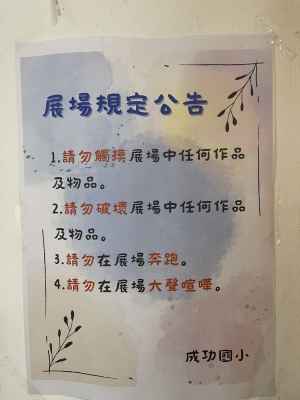 展場規定公告
1.請勿觸摸展場中任何作品
及物品。
2.請勿破壞展場中任何作品
及物品。
3.請勿在展場奔跑。
4.請勿在展場大聲喧嘩。
成功國小